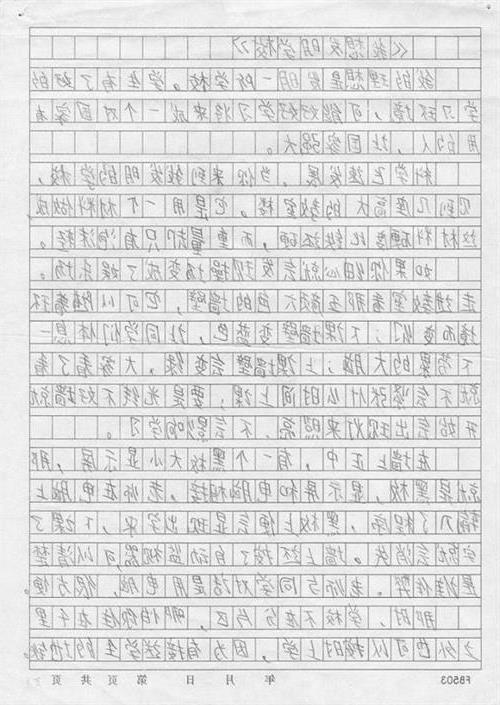 《我想发明学校》
我的理想是发明一所学校。学生有了好的
学习环境,可能好好学习将来成一个对国家有
用的人,让国家强大。
科学飞速发展,当你来到我发明的学校,
见到几座高大的教室楼。它是用一个材料做成,
这材料硬度比铁还硬,而重量却只有泡沫轻。
如果你细心就会发现操场变成了娱乐场。
走进教室看那五颜六色的墙壁,它可以随着环
境而变们:下课墙壁变蓝色,让同学们休息一
下劳累的大脑;上课墙壁会变绿,大家看了看
就不会紧张什么时间上课;要是光线不好墙就
开始会出现灯来照亮,不会影响学习。
在墙上正中,有一个黑板大小显示屏,那
就是黑板,显示屏和电脑相接,老师在电脑上
输入了程序,黑板上便会显现出字来,下课了
字就会消失。墙上还按了自动监视器,可以清楚
是谁作弊。老师与同学对话是用电脑,很方便。
那时,学校不在分片区,哪怕你住在千里
之外也可以按时上学,因为有接送学生的地铁
年 月 日 第 页 共 页 FB503